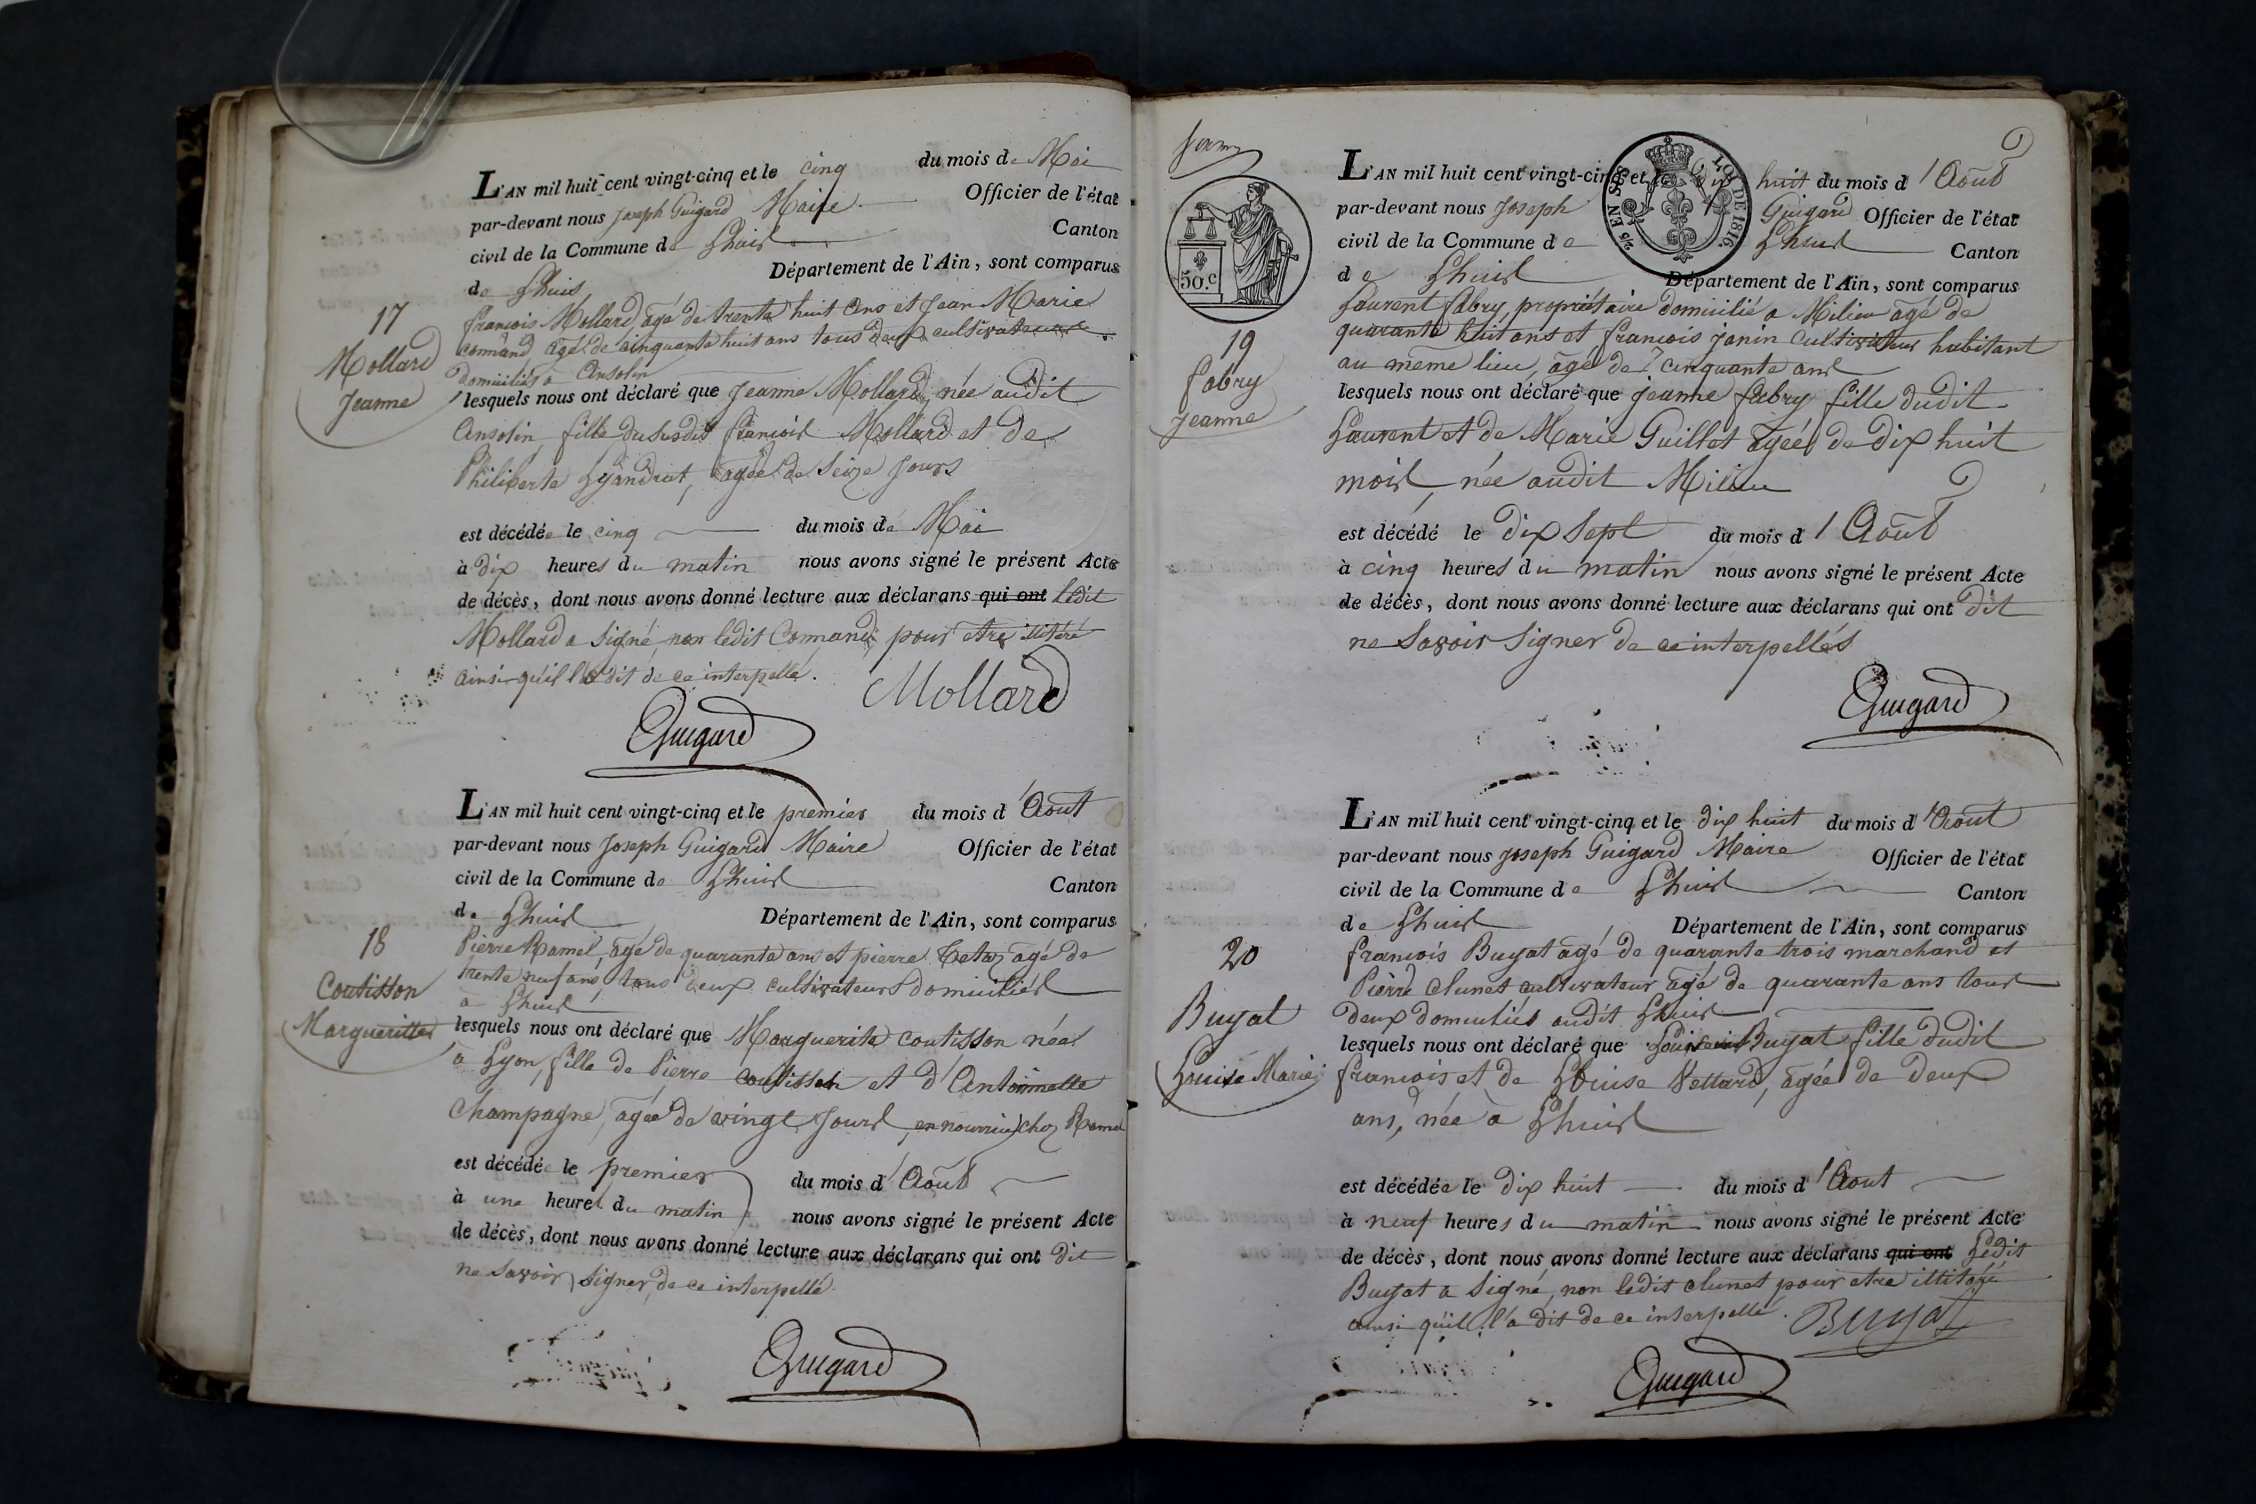 L'AN mil huit cent vingt-cinq et le cinq du mois de Mai
par-devant nous Joseph Guigard Maire Officier de l'état
civil de la Commune de Lhuis Canton
de Lhuis Département de l'Ain, sont comparus
17
Mollard
Jeanne
françois Mollard, agé de trente huit ans et Jean Marie
Comand, agé de cinquante huit ans tous deux cultivateurs
domiciliés à Ansolin
lesquels nous ont déclaré que Jeanne Mollard, née audit
Ansolin, fille du susdit françois Mollard et de
Philiberte, agée de Seize Jours
est décédée le cinq du mois de Mai
à dix heures du matin nous avons signé le présent Acte
de décès, dont nous avons donné lecture aux déclarans qui ont ledit
Mollard a signé, non ledit Comand pour etre illitéré
ainsi qu'il l'a dit de ce interpellé.
Mollard
Guigard
L'AN mil huit cent vingt-cinq et le premier du mois d'Août
par-devant nous Joseph Guigard Maire Officier de l'état
civil de la Commune de Lhuis Canton
de Lhuis Département de l'Ain, sont comparus
18
Coutisson
Margueritte
Pierre Ramel, agé de quarante ans et pierre Tetaz agé de
trente neuf ans, tous deux cultivateurs domiciliés
à Lhuis
lesquels nous ont déclaré que Marguerite Coutisson née
à Lyon, fille de Pierre Coutisson et d'Antoinnette
Champagne, agée de vingt Jours, en nourrice chez Ramel
est décédée le premier du mois d'Août
à une heure du matin nous avons signé le présent Acte
de décès, dont nous avons donné lecture aux déclarans qui ont dit
ne savoir signer, de ce interpellé.
Guigard
50.c
LOI DE 1816.
L'AN mil huit cent vingt-cinq et le dix huit du mois d'Août
par-devant nous Joseph Guigard Officier de l'état
civil de la Commune de Lhuis Canton
de Lhuis Département de l'Ain, sont comparus
19
fabry
Jeanne
Laurent fabry, propriétaire domicilié a Milieu agé de
quarante huit ans et françois janin cultivateur habitant
au même lieu, agé de cinquante ans
lesquels nous ont déclaré que jeanne fabry fille dudit
Laurent et de Marie Guillet agée de dix huit
mois, née audit Milieu
est décédé le dix Sept du mois d'Août
à cinq heures du matin nous avons signé le présent Acte
de décès, dont nous avons donné lecture aux déclarans qui ont dit
ne Savoir Signer de ce interpellés
Guigard
L'AN mil huit cent vingt-cinq et le dix huit du mois d'Août
par-devant nous Joseph Guigard Maire Officier de l'état
civil de la Commune de Lhuis Canton
de Lhuis Département de l'Ain, sont comparus
20
Buyat
Louise Marie
françois Buyat agé de quarante trois marchand et
Pierre Clunet cultivateur agé de quarante ans tous
deux domiciliés audit Lhuis
lesquels nous ont déclaré que Buyat fille dudit
françois et de Louise Vettard, agée de deux
ans, née à Lhuis
est décédée le dix huit du mois d'Aout
à neuf heures du matin nous avons signé le présent Acte
de décès, dont nous avons donné lecture aux déclarans qui ont Ledit
Buyat a signé, non ledit Clunet pour etre illitéré
ainsi qu'il l'a dit de ce interpellé.
Buyat
Guigard